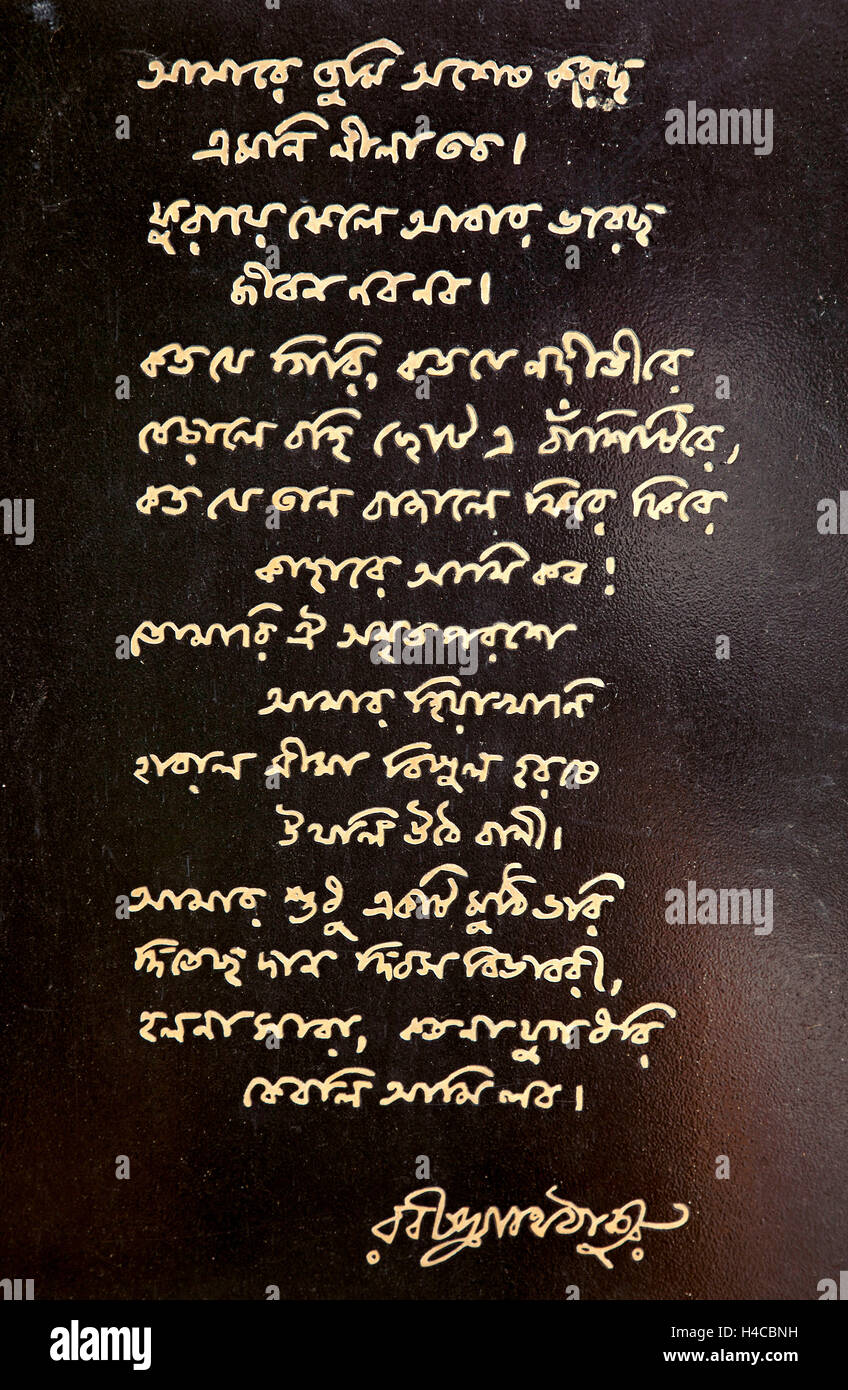 আমারে তুমি অশেষ করেছ
এমনি লীলা তব।
ফুরায়ে ফেলে আবার ভরেছ
জীবন নব নব।
কত যে গিরি, কত যে নদীতীরে
বেড়ালে বহি ছোট এ বাঁশিটিরে,
কত যে তান বাজালে ফিরে ফিরে
কাহারে আমি কব!
তোমারি ঐ অমৃতপরশে
আমার হিয়াখানি
হারাল সীমা বিপুল হরষে
উথলি উঠে বাণী।
আমার শুধু একটি মুঠি ভরি
দিতেছ দান দিবস বিভাবরী,
হল না সারা, কত না যুগ ধরি
কেবলি আমি লব।
রবীন্দ্রনাথ ঠাকুর
alamy
Image ID: H4CBNH
www.alamy.com